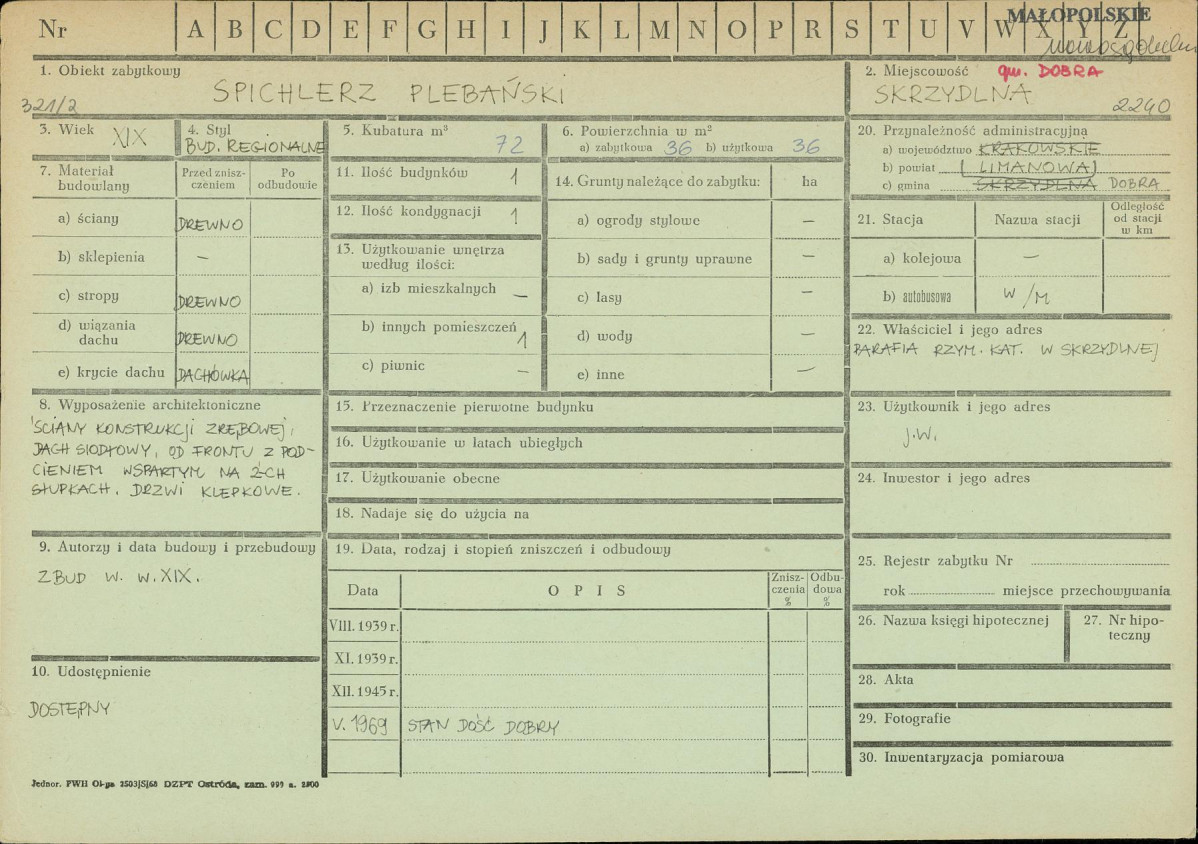 Nr A B C D E F G H I J K L M N O P R S T U V W X Y Z
MAŁOPOLSKIE
1. Obiekt zabytkowy
SPICHLERZ PLEBAŃSKI
321/2
2. Miejscowość gm. DOBRA
SKRZYDLNA
2240
3. Wiek XIX
4. Styl
BUD. REGIONALNE
5. Kubatura m³
72
6. Powierzchnia w m²
a) zabytkowa 36 b) użytkowa 36
7. Materiał budowlany
Przed zniszczeniem
Po odbudowie
a) ściany DREWNO
b) sklepienia –
c) stropy DREWNO
d) wiązania dachu DREWNO
e) krycie dachu DACHÓWKA
8. Wyposażenie architektoniczne
ŚCIANY KONSTRUKCJI ZRĘBOWEJ,
DACH SIODŁOWY, OD FRONTU Z POD-
CIENIEM WSPARTYM NA 2-CH
SŁUPKACH. DRZWI KLEPKOWE.
9. Autorzy i data budowy i przebudowy
ZBUD W. W. XIX.
10. Udostępnienie
DOSTĘPNY
11. Ilość budynków 1
12. Ilość kondygnacji 1
13. Użytkowanie wnętrza
według ilości:
a) izb mieszkalnych –
b) innych pomieszczeń 1
c) piwnic –
14. Grunty należące do zabytku: ha
a) ogrody stylowe –
b) sady i grunty uprawne –
c) lasy –
d) wody –
e) inne –
15. Przeznaczenie pierwotne budynku
16. Użytkowanie w latach ubiegłych
17. Użytkowanie obecne
18. Nadaje się do użycia na
19. Data, rodzaj i stopień zniszczeń i odbudowy
Data
OPIS
Znisz-
czenia
%
Odbu-
dowa
%
VIII. 1939 r.
XI. 1939 r.
XII. 1945 r.
V. 1969 STAN DOŚĆ DOBRY
20. Przynależność administracyjna
a) województwo KRAKOWSKIE
b) powiat (LIMANOWA)
c) gmina SKRZYDLNA DOBRA
21. Stacja
Nazwa stacji
Odległość
od stacji
w km
a) kolejowa –
b) autobusowa W/M
22. Właściciel i jego adres
PARAFIA RZYM. KAT. W SKRZYDLNEJ
23. Użytkownik i jego adres
J.W.
24. Inwestor i jego adres
25. Rejestr zabytku Nr
rok miejsce przechowywania
26. Nazwa księgi hipotecznej
27. Nr hipo-
teczny
28. Akta
29. Fotografie
30. Inwentaryzacja pomiarowa